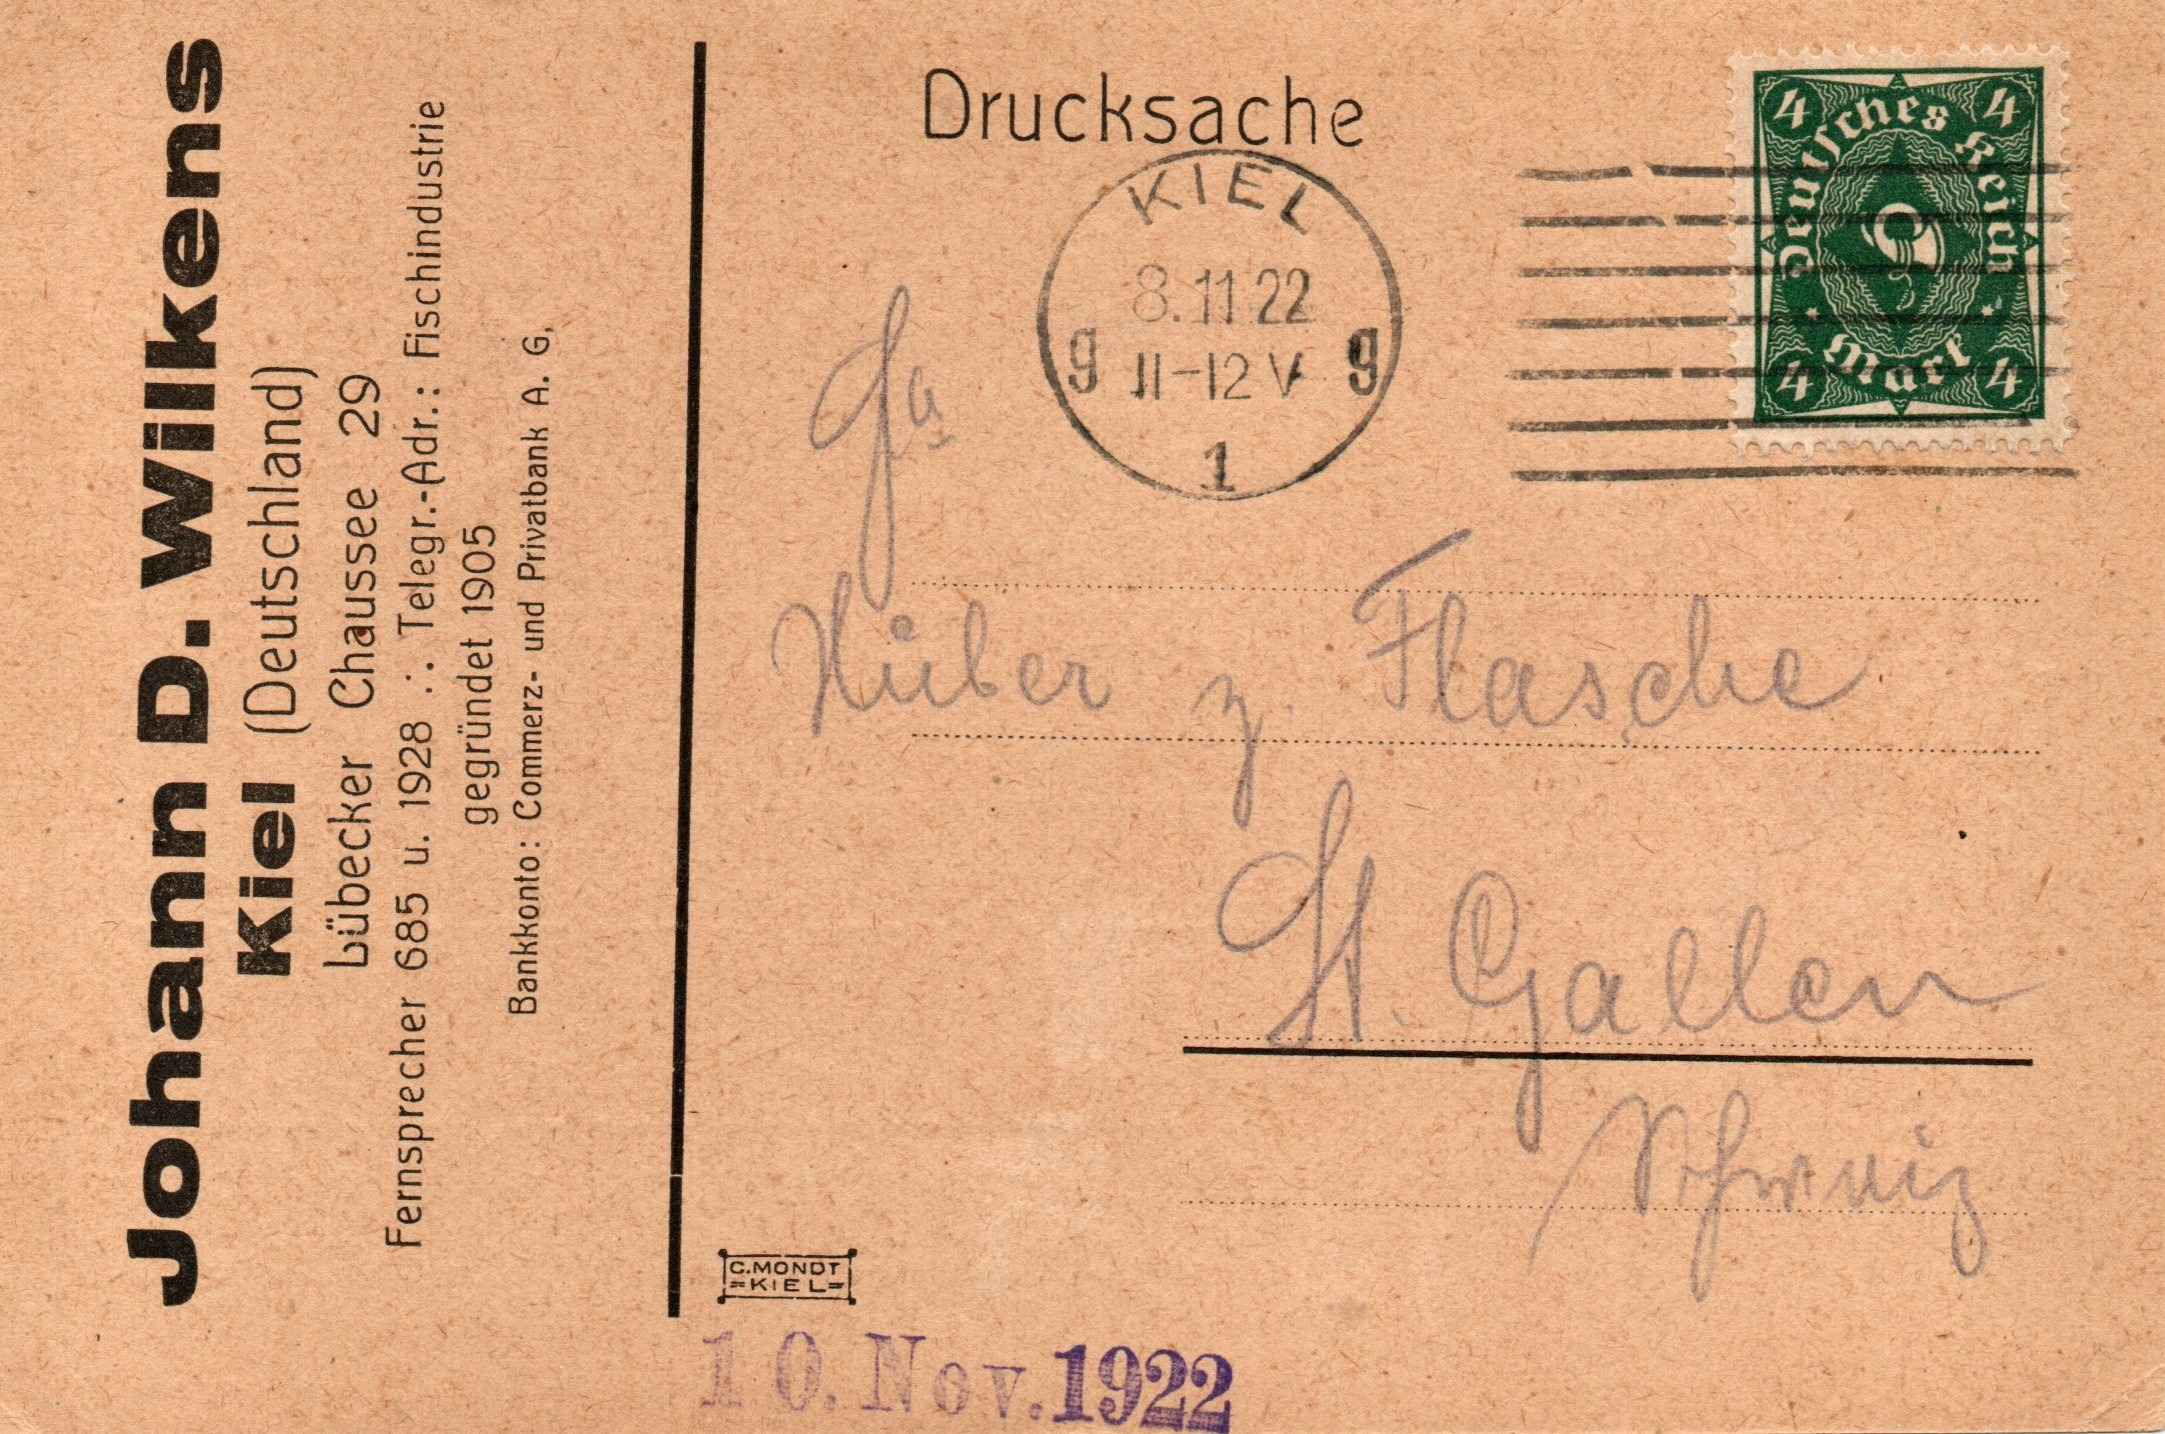 Johann D. Wilkens
Kiel (Deutschland)
Lübecker Chaussee 29
Fernsprecher 685 u. 1928 ∴ Telegr.-Adr.: Fischindustrie
gegründet 1905
Bankkonto: Commerz- und Privatbank A. G.
Drucksache
KIEL
8.11 22
11-12 V
g g
1
4 4
Deutsches Reich
Mark
4 4
Fa
Huber z. Flasche
St. Gallen
Schweiz
C. MONDT
=KIEL=
10. Nov. 1922